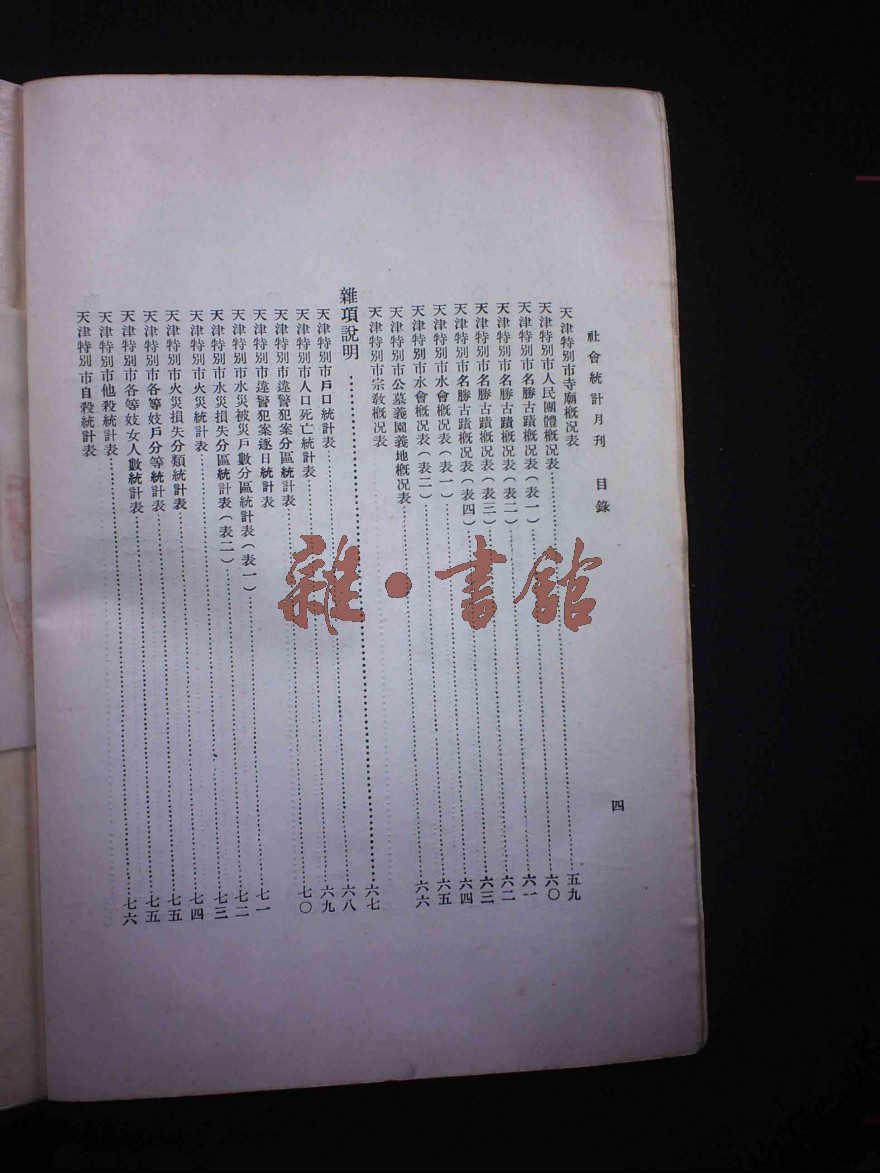 社會統計月刊 目錄 四
天津特別市寺廟概况表……五九
天津特別市人民團體概况表……六〇
天津特別市名勝古蹟概况表(表一)……六一
天津特別市名勝古蹟概况表(表二)……六二
天津特別市名勝古蹟概况表(表三)……六三
天津特別市名勝古蹟概况表(表四)……六四
天津特別市水會概况表(表一)……六五
天津特別市水會概况表(表二)……六六
天津特別市公墓義園義地概况表
天津特別市宗教概况表
雜項說明……六七
天津特別市戶口統計表……六八
天津特別市人口死亡統計表……六九
天津特別市違警犯案分區統計表……七〇
天津特別市違警犯案逐日統計表
天津特別市水災被災戶數分區統計表(表一)……七一
天津特別市水災損失分區統計表(表二)……七二
天津特別市火災統計表……七三
天津特別市火災損失分類統計表……七四
天津特別市各等妓戶分等統計表……七五
天津特別市各等妓女人數統計表……七五
天津特別市他殺統計表……七六
天津特別市自殺統計表
雜·書館